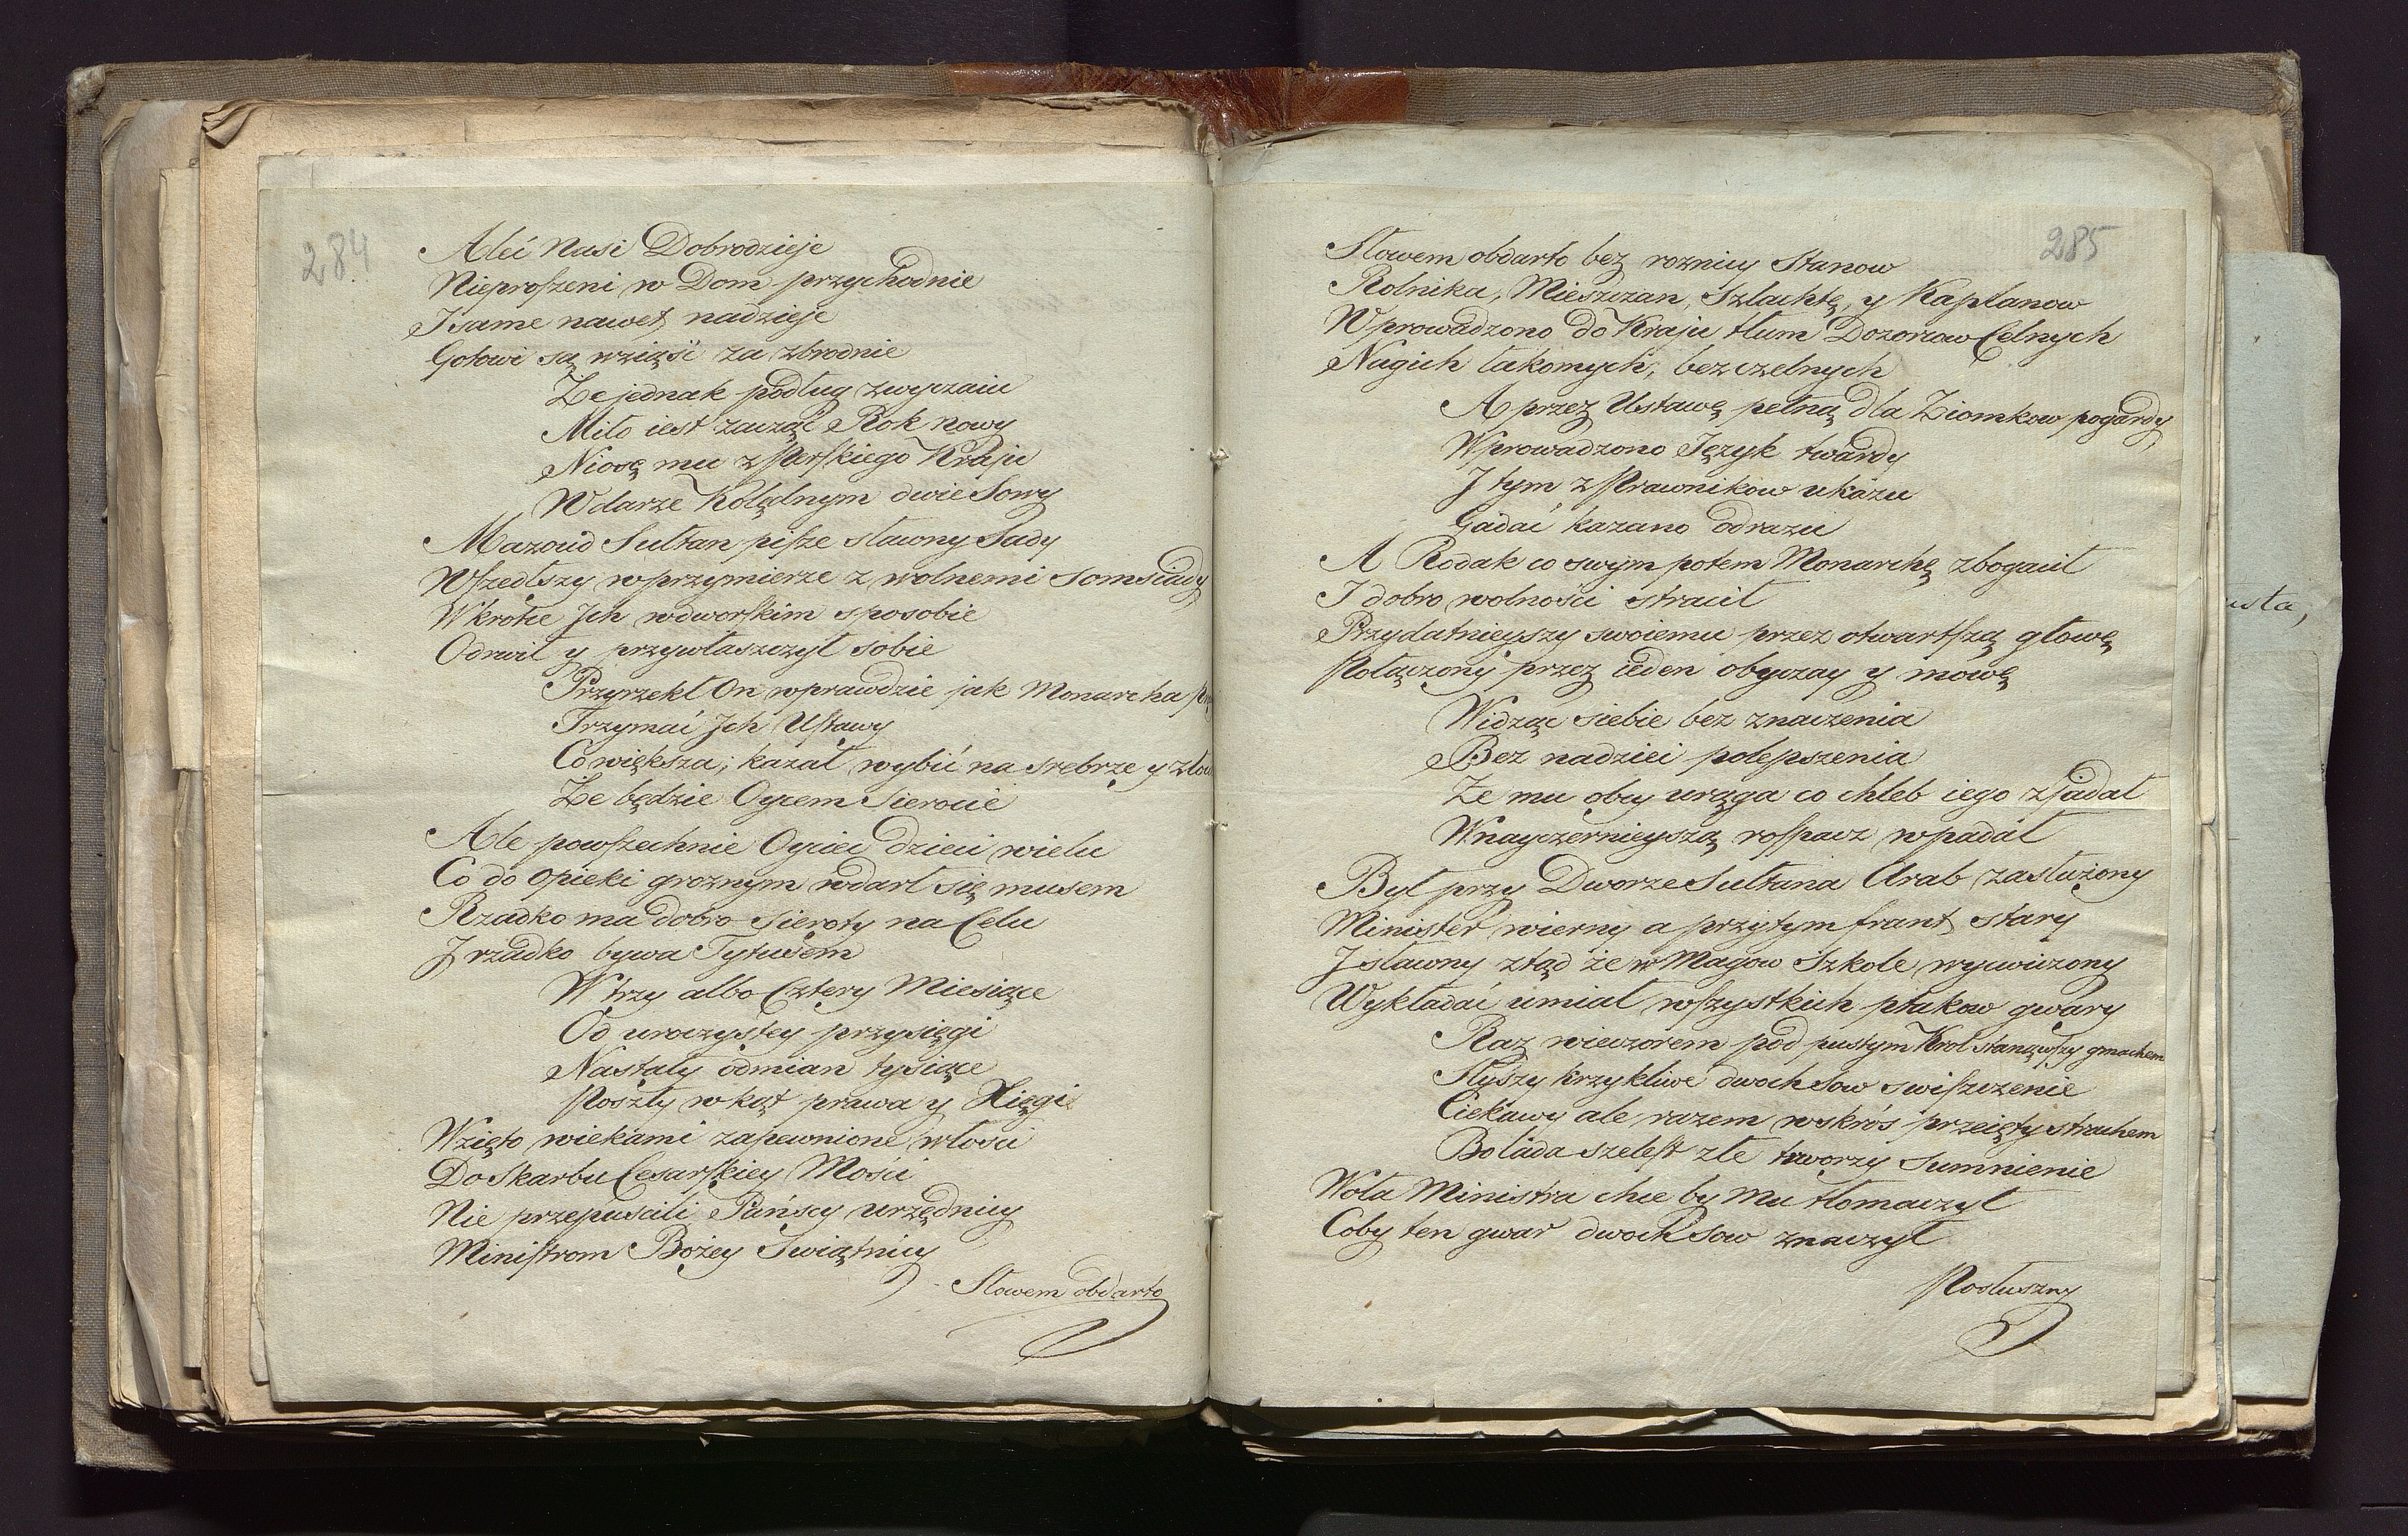 284
Aleć Nasi Dobrodzieje
Nieproszeni w Dom przychodnie
I same nawet nadzieje
Gotowi są wziąść za zbrodnie
Że jednak podług zwyczaiu
Miło iest zacząć Rok nowy
Niosę mu z Perskiego Kraju
W darze Kolędnym dwie Sowy
Mazoud Sułtan pisze sławny Sady
Wszedłszy w przymierze z wolnemi Somsiady
Wkrotce Ich w dworskim sposobie
Odrwił y przywłaszczył sobie
Przyrzekł On wprawdzie jak Monarcha
Trzymać Ich Ustawy
Co większa; kazał wybić na srebrze y
Że będzie Oycem Sierocie
Ale powszechnie Oyciec dzieci wielu
Co do Opieki groznym wdarł się musem
Rzadko ma dobro sieroty na Celu
I rzadko bywa Tytusem
W trzy albo Cztery Miesiące
Od uroczystey przysięgi
Nastały odmian tysiące
Poszły w kąt prawa y Xięgi
Wzięto wiekami zapewnione włości
Do Skarbu Cesarskiey Mości
Nie przepuścili Pańscy urzędnicy
Ministrom Bożey Swiątnicy
Słowem obdarto
285
Słowem obdarto bez roznicy Stanow
Rolnika, Mieszczan, Szlachtę, y Kapłanow
Wprowadzono do Kraju tłum Dozorcow Celnych
Nagich łakomych, bezczelnych
A przez Ustawę pełną dla Ziomkow pogardy,
Wprowadzono Język twardy
I tym z Prawnikow ukazu
Gadać kazano odrazu
A Rodak co swym potem Monarchę zbogacił
I dobro wolności stracił
Przydatnieyszy swoiemu przez otwartszą głowę
Połączony przez ieden obyczay y mowę
Widząc siebie bez znaczenia
Bez nadziei polepszenia
Że mu obcy urąga co chleb iego zjadał
W nayczernieyszą rospacz wpadał
Był przy Dworze Sułtana Arab zasłużony
Minister wierny a przytym frant stary
I sławny ztąd że w Magow Szkole wycwiczony
Wykładać umiał wszystkich ptakow gwary
Raz wieczorem pod pustym Krol stanąwszy gmachem
Słyszy krzykliwe dwoch Sow swiszczenie
Ciekawy ale razem wskróś przeięty strachem
Bo lada szelest złe tworzy sumnienie
Woła Ministra chce by Mu tłomaczył
Coby ten gwar dwoch Sow znaczył
Posłuszny